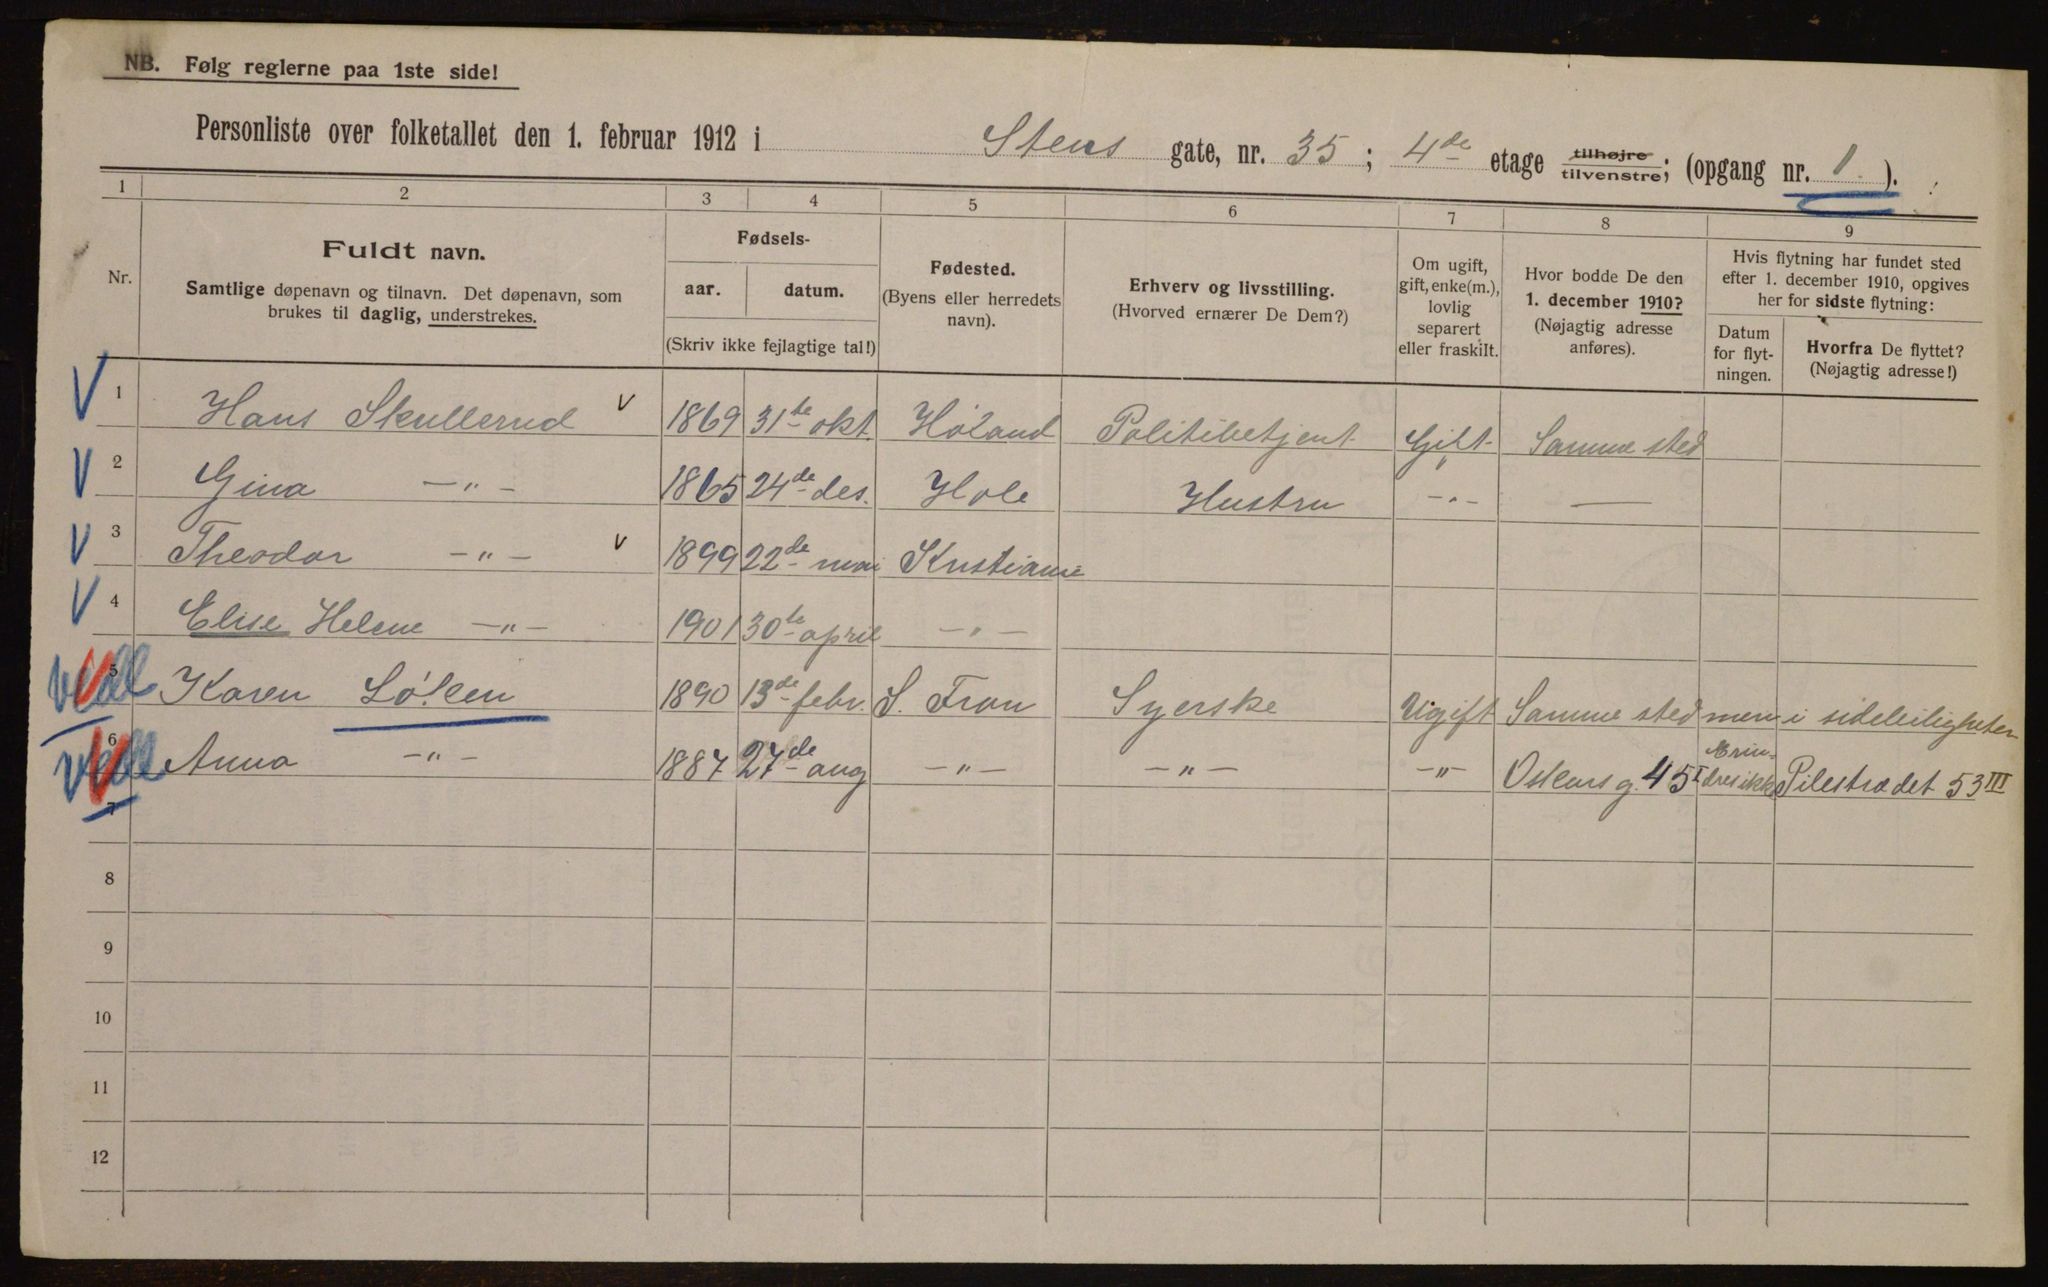 NB. Følg reglerne paa 1ste side!
Personliste over folketallet den 1. februar 1912 i Stens gate, nr. 35; 4de etage tilhøjre tilvenstre; (opgang nr. 1.).
1 2 3 4 5 6 7 8 9
Nr.
Fuldt navn.
Samtlige døpenavn og tilnavn. Det døpenavn, som
brukes til daglig, understrekes.
Fødsels-
aar. datum.
(Skriv ikke fejlagtige tal!)
Fødested.
(Byens eller herredets
navn).
Erhverv og livsstilling.
(Hvorved ernærer De Dem?)
Om ugift,
gift, enke(m.),
lovlig
separert
eller fraskilt.
Hvor bodde De den
1. december 1910?
(Nøjagtig adresse
anføres).
Hvis flytning har fundet sted
efter 1. december 1910, opgives
her for sidste flytning:
Datum
for flyt-
ningen.
Hvorfra De flyttet?
(Nøjagtig adresse!)
V 1 Hans Skullerud V 1869 31te okt. Høland Politibetjent Gift Samme sted
V 2 Gina —"— 1865 24de des. Hole Hustru —"— —
V 3 Theodor —"— V 1899 22de mai Kristiania
V 4 Elise Helene —"— 1901 30te april —"—
vedl 5 Karen Løken 1890 13de febr. S. Fron Syerske Ugift Samme sted men i sideleiligheten
vedl 6 Anna —"— 1887 27de aug —"— —"— —"— Oskars g. 45 I Erin-
dres ikke Pilestrædet 53 III
7
8
9
10
11
12